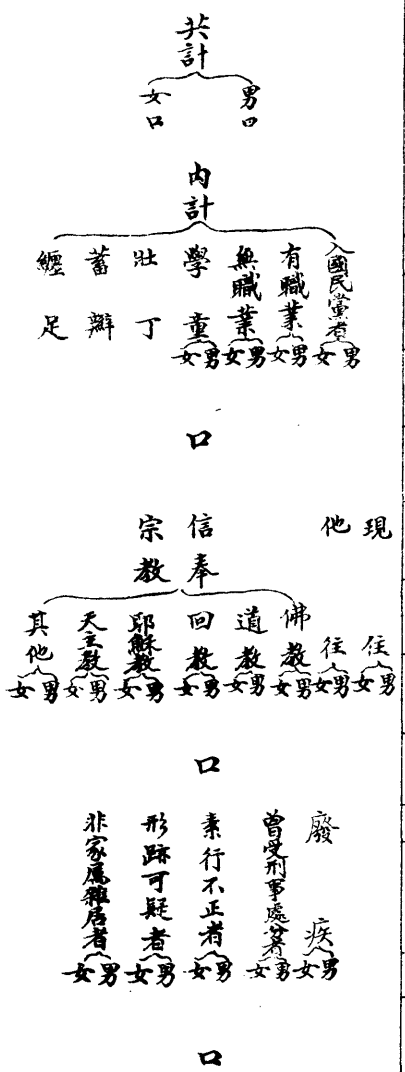 共計
男口
女口
內計
入國民黨者
男
女
有職業
男
女
無職業
男
女
學童
男
女
壯丁
蓄辮
纏足
口
現住
男
女
他往
男
女
信奉宗教
佛教
男
女
道教
男
女
回教
男
女
耶穌教
男
女
天主教
男
女
其他
男
女
口
廢疾
男
女
曾受刑事處分者
男
女
素行不正者
男
女
形跡可疑者
男
女
非家屬雜居者
男
女
口